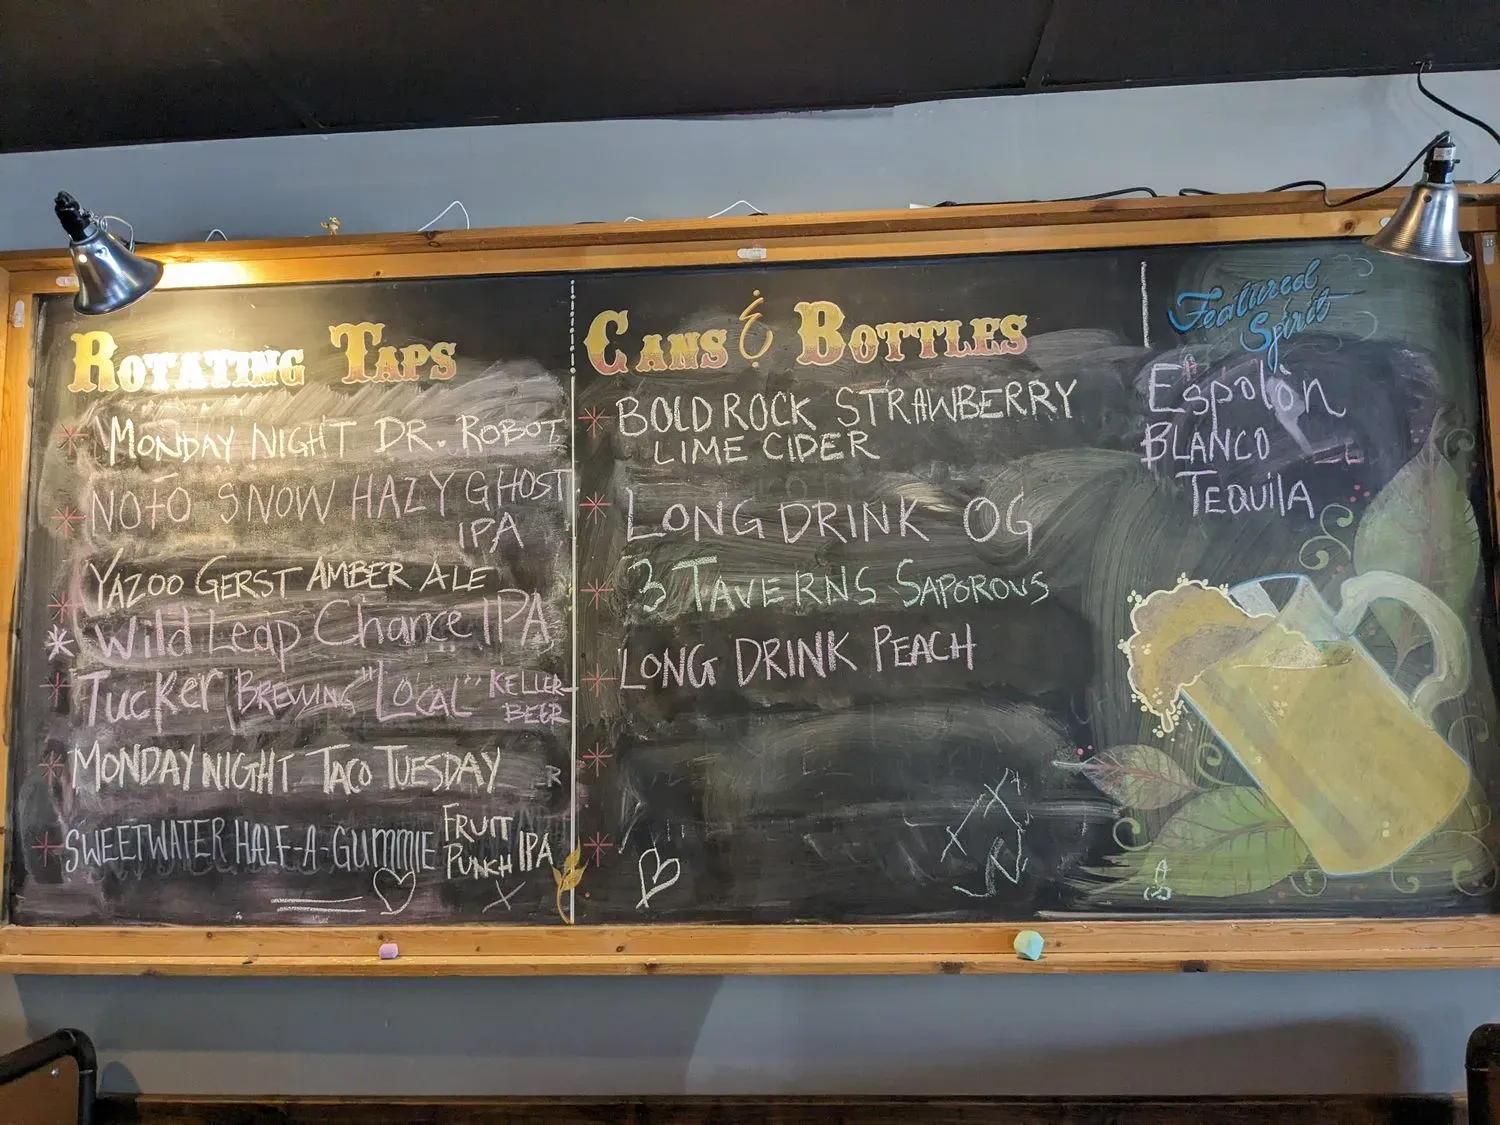 ROTATING TAPS
MONDAY NIGHT DR. ROBOT
NOTO SNOW HAZY GHOST
IPA
YAZOO GERST AMBER ALE
Wild Leap Chance IPA
Tucker BREWING "LOCAL" KELLER
BEER
MONDAY NIGHT TACO TUESDAY
SWEETWATER HALF-A-GUMMIE FRUIT
PUNCH IPA
CANS & BOTTLES
BOLD ROCK STRAWBERRY
LIME CIDER
LONG DRINK OG
3 TAVERNS SAPOROUS
LONG DRINK PEACH
Featured
Spirit
Espolòn
BLANCO
TEQUILA